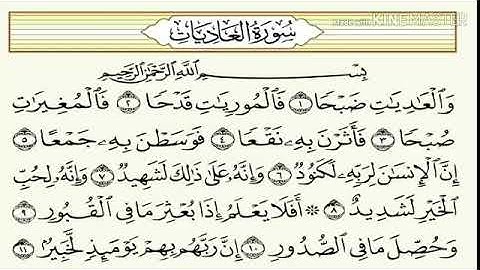 Made with KINEMASTER
سُورَةُ العَادِيَاتِ
بِسْمِ اللَّهِ الرَّحْمَٰنِ الرَّحِيمِ
وَالْعَادِيَاتِ ضَبْحًا ١ فَالْمُورِيَاتِ قَدْحًا ٢ فَالْمُغِيرَاتِ
صُبْحًا ٣ فَأَثَرْنَ بِهِ نَقْعًا ٤ فَوَسَطْنَ بِهِ جَمْعًا ٥
إِنَّ الْإِنسَانَ لِرَبِّهِ لَكَنُودٌ ٦ وَإِنَّهُ عَلَىٰ ذَٰلِكَ لَشَهِيدٌ ٧ وَإِنَّهُ لِحُبِّ
الْخَيْرِ لَشَدِيدٌ ٨ ۞ أَفَلَا يَعْلَمُ إِذَا بُعْثِرَ مَا فِي الْقُبُورِ ٩
وَحُصِّلَ مَا فِي الصُّدُورِ ١٠ إِنَّ رَبَّهُم بِهِمْ يَوْمَئِذٍ لَّخَبِيرٌ ١١